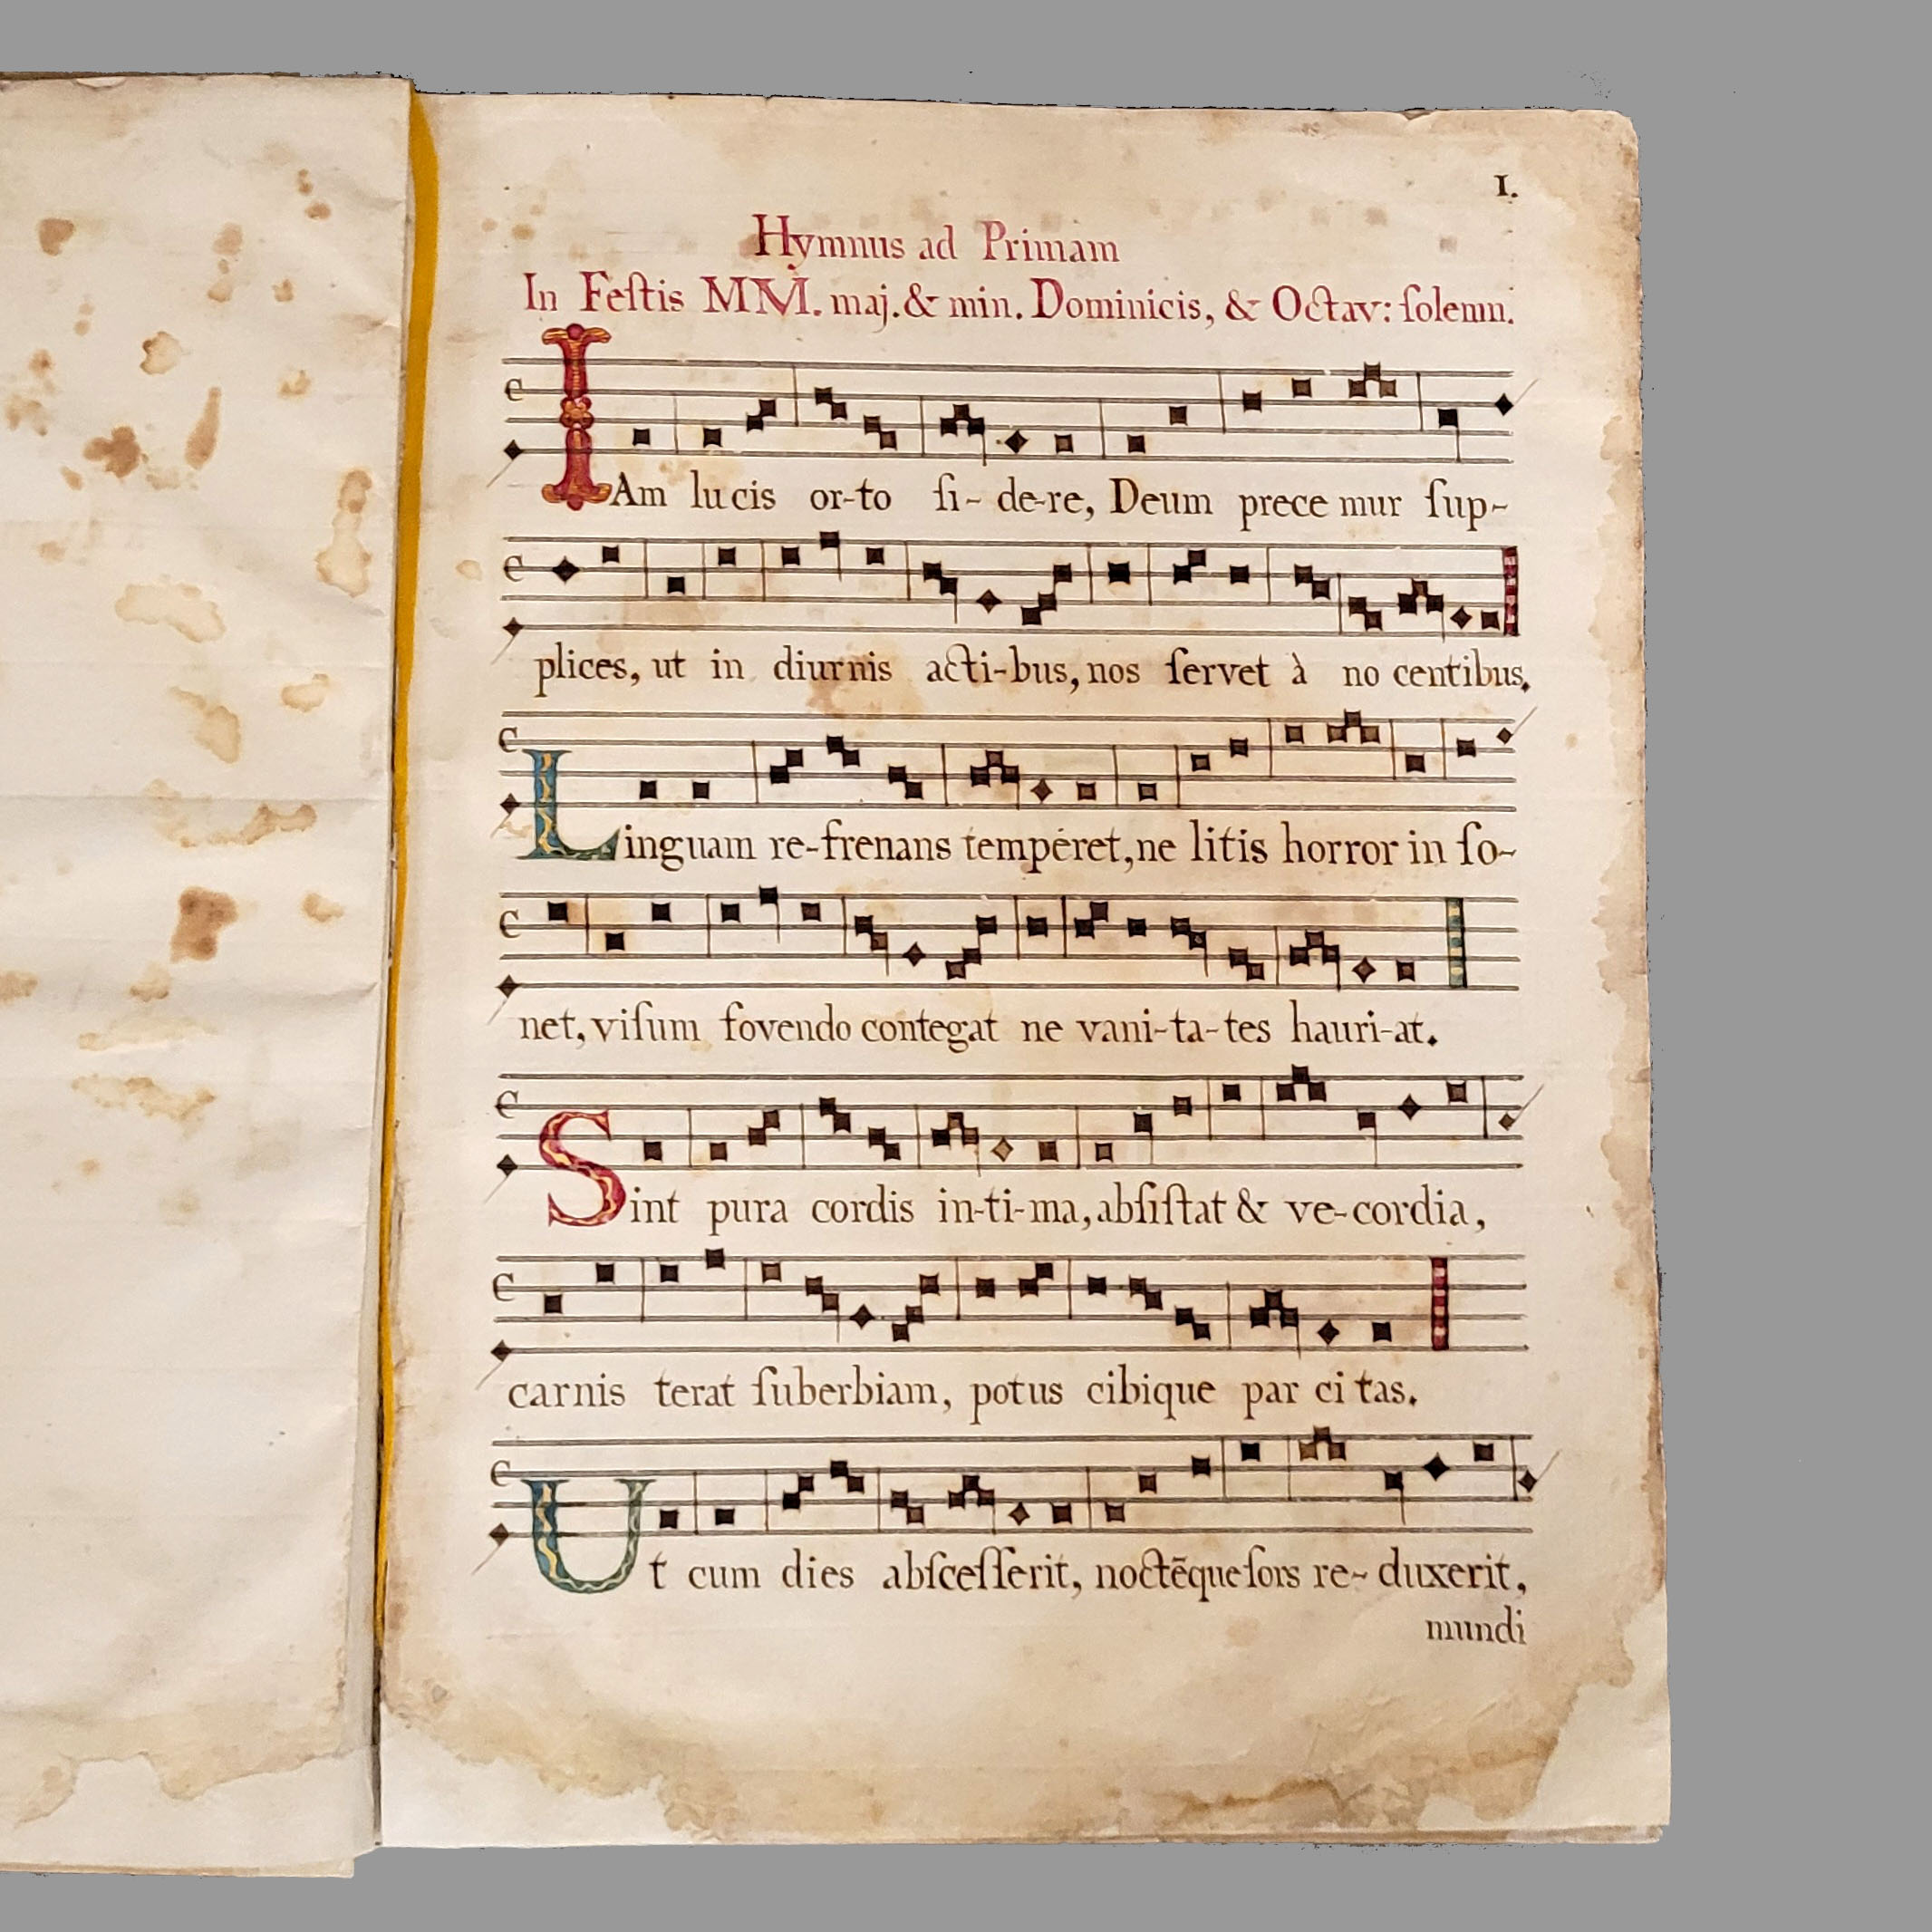 I.
Hymnus ad Primam
In Feſtis MM. maj. & min. Dominicis, & Octav: ſolemn.
IAm lucis or-to ſi-de-re, Deum prece mur ſup-
plices, ut in diurnis acti-bus, nos ſervet à no centibus.
Linguam re-frenans temperet, ne litis horror in ſo-
net, viſum fovendo contegat ne vani-ta-tes hauri-at.
Sint pura cordis in-ti-ma, abſiſtat & ve-cordia,
carnis terat ſuberbiam, potus cibique par ci tas.
Ut cum dies abſceſſerit, noctēque ſors re-duxerit,
mundi